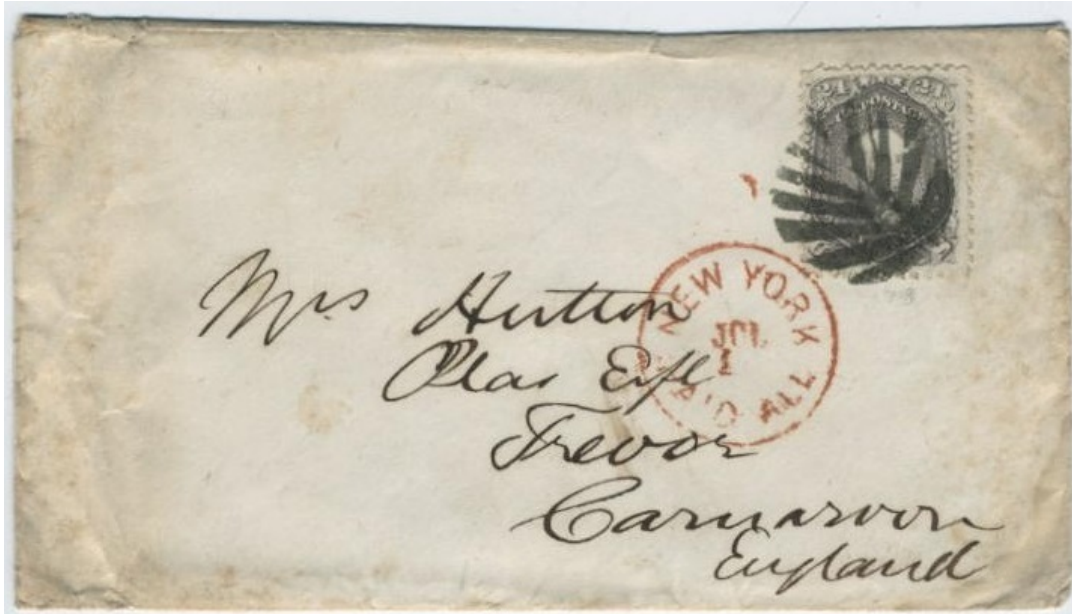 24 24
U.S. POSTAGE
NEW YORK
JUL
1
PAID ALL
Mrs Hutton
Plas Eifl
Trevor
Carnarvon
England